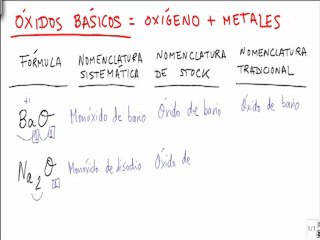 ÓXIDOS BÁSICOS = OXÍGENO + METALES
FÓRMULA NOMENCLATURA SISTEMÁTICA NOMENCLATURA DE STOCK NOMENCLATURA TRADICIONAL
+1
BaO Monóxido de bario Óxido de bario Óxido de bario
Na2O Monóxido de disodio Óxido de